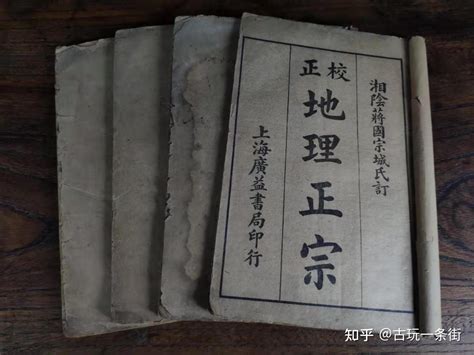 湘陰蔣國宗城氏訂
校正
地理正宗
上海廣益書局印行
知乎 @古玩一条街